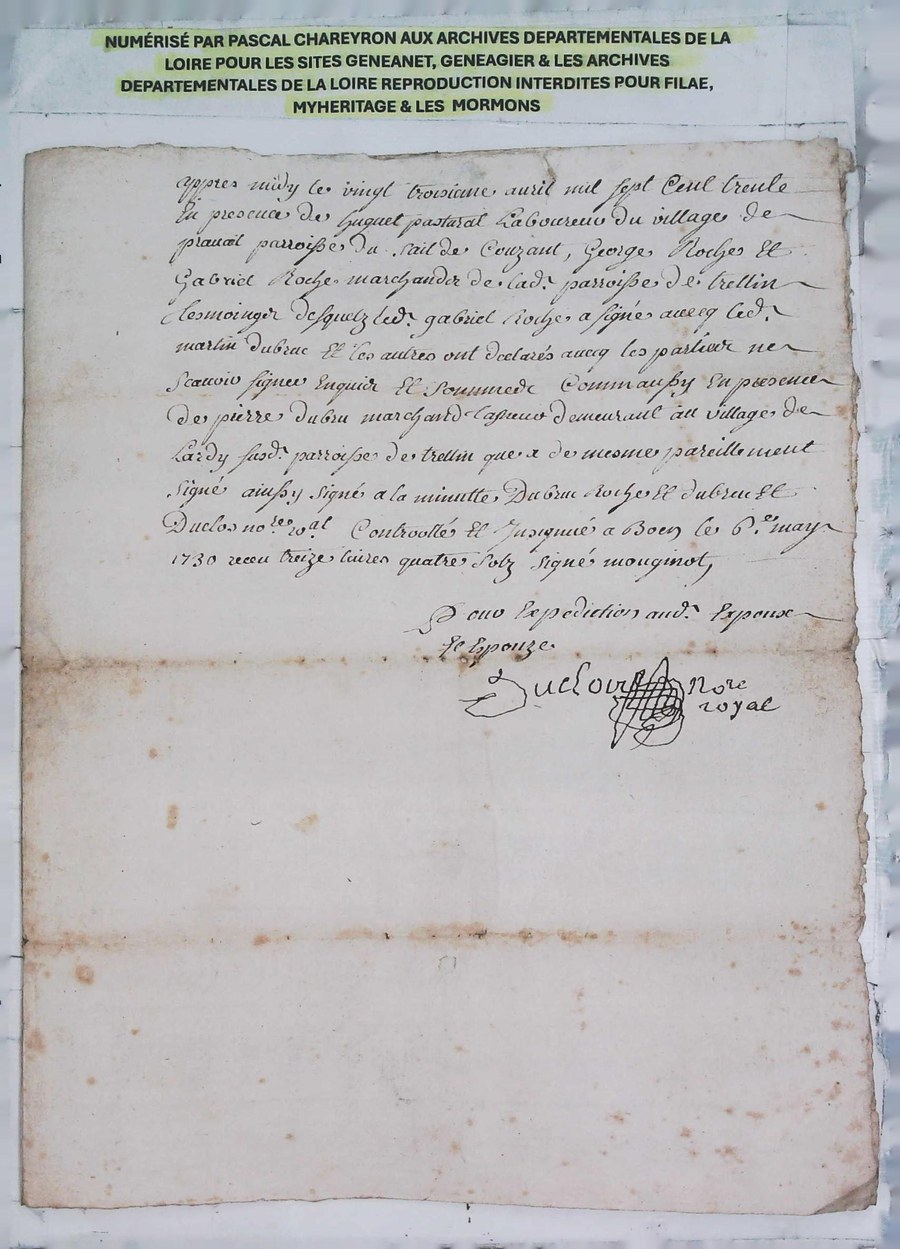 NUMÉRISÉ PAR PASCAL CHAREYRON AUX ARCHIVES DEPARTEMENTALES DE LA
LOIRE POUR LES SITES GENEANET, GENEAGIER & LES ARCHIVES
DEPARTEMENTALES DE LA LOIRE REPRODUCTION INTERDITES POUR FILAE,
MYHERITAGE & LES MORMONS
appres midy le vingt troisieme auril mil sept Cent trente
En presence de huguet pastural Laboureur du village de
prauail parroisse du Sail de Couzant, George Roche Et
Gabriel Roche marchandz de lad. parroisse de trellin
tesmoingz desquelz led. gabriel Roche a signé auecq led.
martin dubruc Et les autres ont declarés auecq les partier ne
scauoir signer Enquis Et Sommede Commaussy En presence
de pierre dubru marchand demeurant au village de
Lardy susd. parroisse de trellin que a de mesme pareillement
signé ainssy signé a la minutte Dubruc Roche Et dubruc Et
Duclos no.re roal Controollé Et Insignué a Boen le 6.e may
1730 receu treize liures quatre solz signé mouginot,
Pour Expedition aud. Expoux
Et Epouze
Duclos Nore
royal